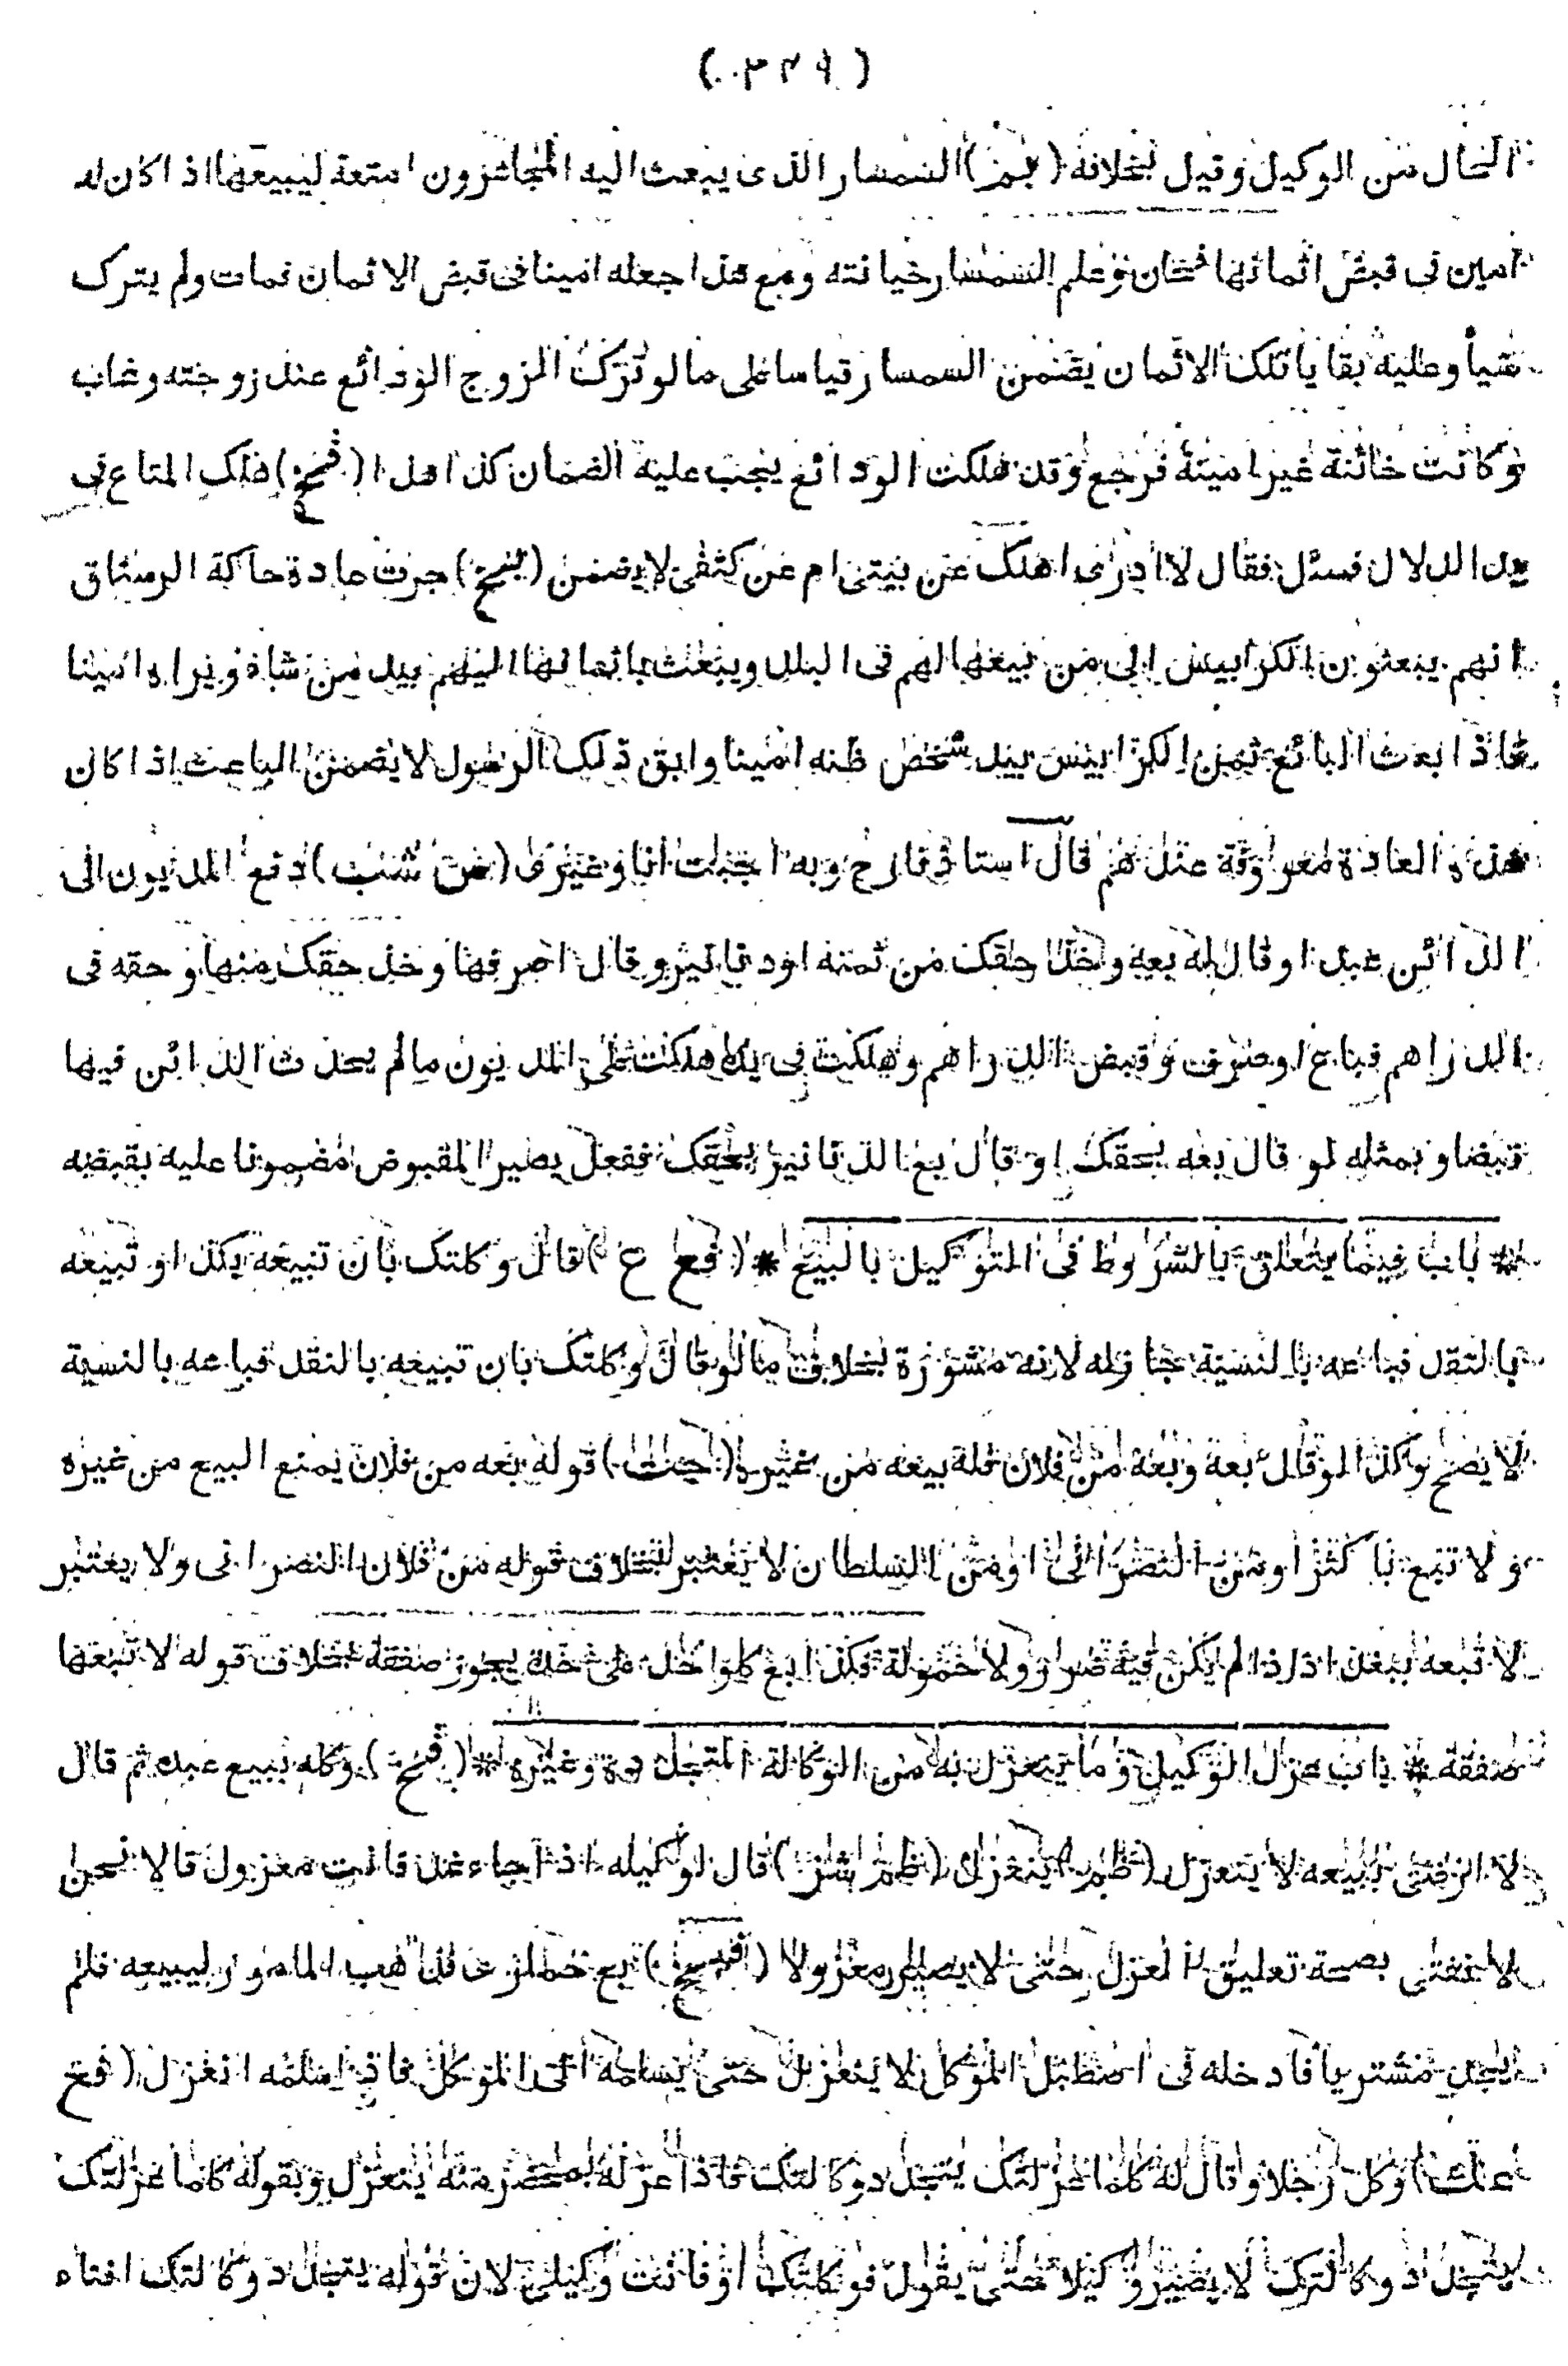 ( ٣٤٩ )
الحال من الوكيل وقيل بخلافه ( بم ) السمسار الذى يبعث اليه التجار امتعة ليبيعها اذا كان له
امين فى قبض اثمانها فخان وعلم السمسار خيانته ومع هذا جعله امينا فى قبض الاثمان فمات ولم يترك
شيأ وعليه بقايا تلك الاثمان يضمن السمسار قياسا على ما لو ترك الزوج الودائع عند زوجته وغاب
وكانت خائنة غير امينة فرجع وقد هلكت الودائع يجب عليه الضمان كذا هذا ( ) هلك المتاع فى
يد الدلال فسئل فقال لا ادرى اهلك عن بيتى ام عن كتفى لا يضمن ( ) جرت عادة حاكة الرستاق
انهم يبعثون الكرابيس الى من يبيعها لهم فى البلد ويبعث باثمانها اليهم بيد من شاء ويراه امينا
فاذا بعث البائع ثمن الكرابيس بيد شخص ظنه امينا وابق ذلك الرسول لا يضمن الباعث اذا كان
هذه العادة معروفة عندهم قال استاذنا رح وبه اجبت انا وغيرى ( ) دفع المديون الى
الدائن عبدا وقال له بعه وخذ حقك من ثمنه او دنانير وقال اصرفها وخذ حقك منها وحقه فى
الدراهم فباع او صرف وقبض الدراهم وهلكت فى يده هلكت على المديون مالم يحدث الدائن فيها
قبضا وبمثله لو قال بعه بحقك او قال بع الدنانير بحقك ففعل يصير المقبوض مضمونا عليه بقبضه
* باب فيما يتعلق بالشروط فى التوكيل بالبيع * ( فع ع ) قال وكلتك بان تبيعه بكذا وتبيعه
بالنقد فباعه بالنسية جاز له لانه مشورة بخلاف ما لو قال وكلتك بان تبيعه بالنقد فباعه بالنسية
لا يصح وكذا لو قال بعه وبعه من فلان فله بيعه من غيره ( ) قوله بعه من فلان يمنع البيع من غيره
ولا تبع باكثر او من النصرانى او من السلطان لا يعتبر بخلاف قوله من فلان النصرانى ولا يعتبر
لا تبعه ببغداد اذا لم يكن فيه ضرر ولا حمولة فكذا بع كلواحد على حدة يجوز صفقة بخلاف قوله لا تبعها
صفقة * باب عزل الوكيل وما ينعزل به من الوكالة المتجددة وغيره * ( ) وكله ببيع عبده ثم قال
لا ارضى ببيعه لا ينعزل ( ظم ) ينعزل ( ظم ) قال لوكيله اذا جاء غد فانت معزول قالا نحن
لا نفتى بصحة تعليق العزل حتى لا يصير معزولا ( ) بع حمارى فذهب المامور ليبيعه فلم
يجد مشتريا فادخله فى اصطبل الموكل لا ينعزل حتى يسلمه الى الموكل فاذا سلمه انعزل ( فع
عك ) وكل رجلا وقال له كلما عزلتك يتجدد وكالتك فاذا عزله بمحضر منه ينعزل وبقوله كلما عزلتك
يتجدد وكالتك لا يصير وكيلا حتى يقول فوكلتك او فانت وكيلى لان قوله يتجدد وكالتك افتاء